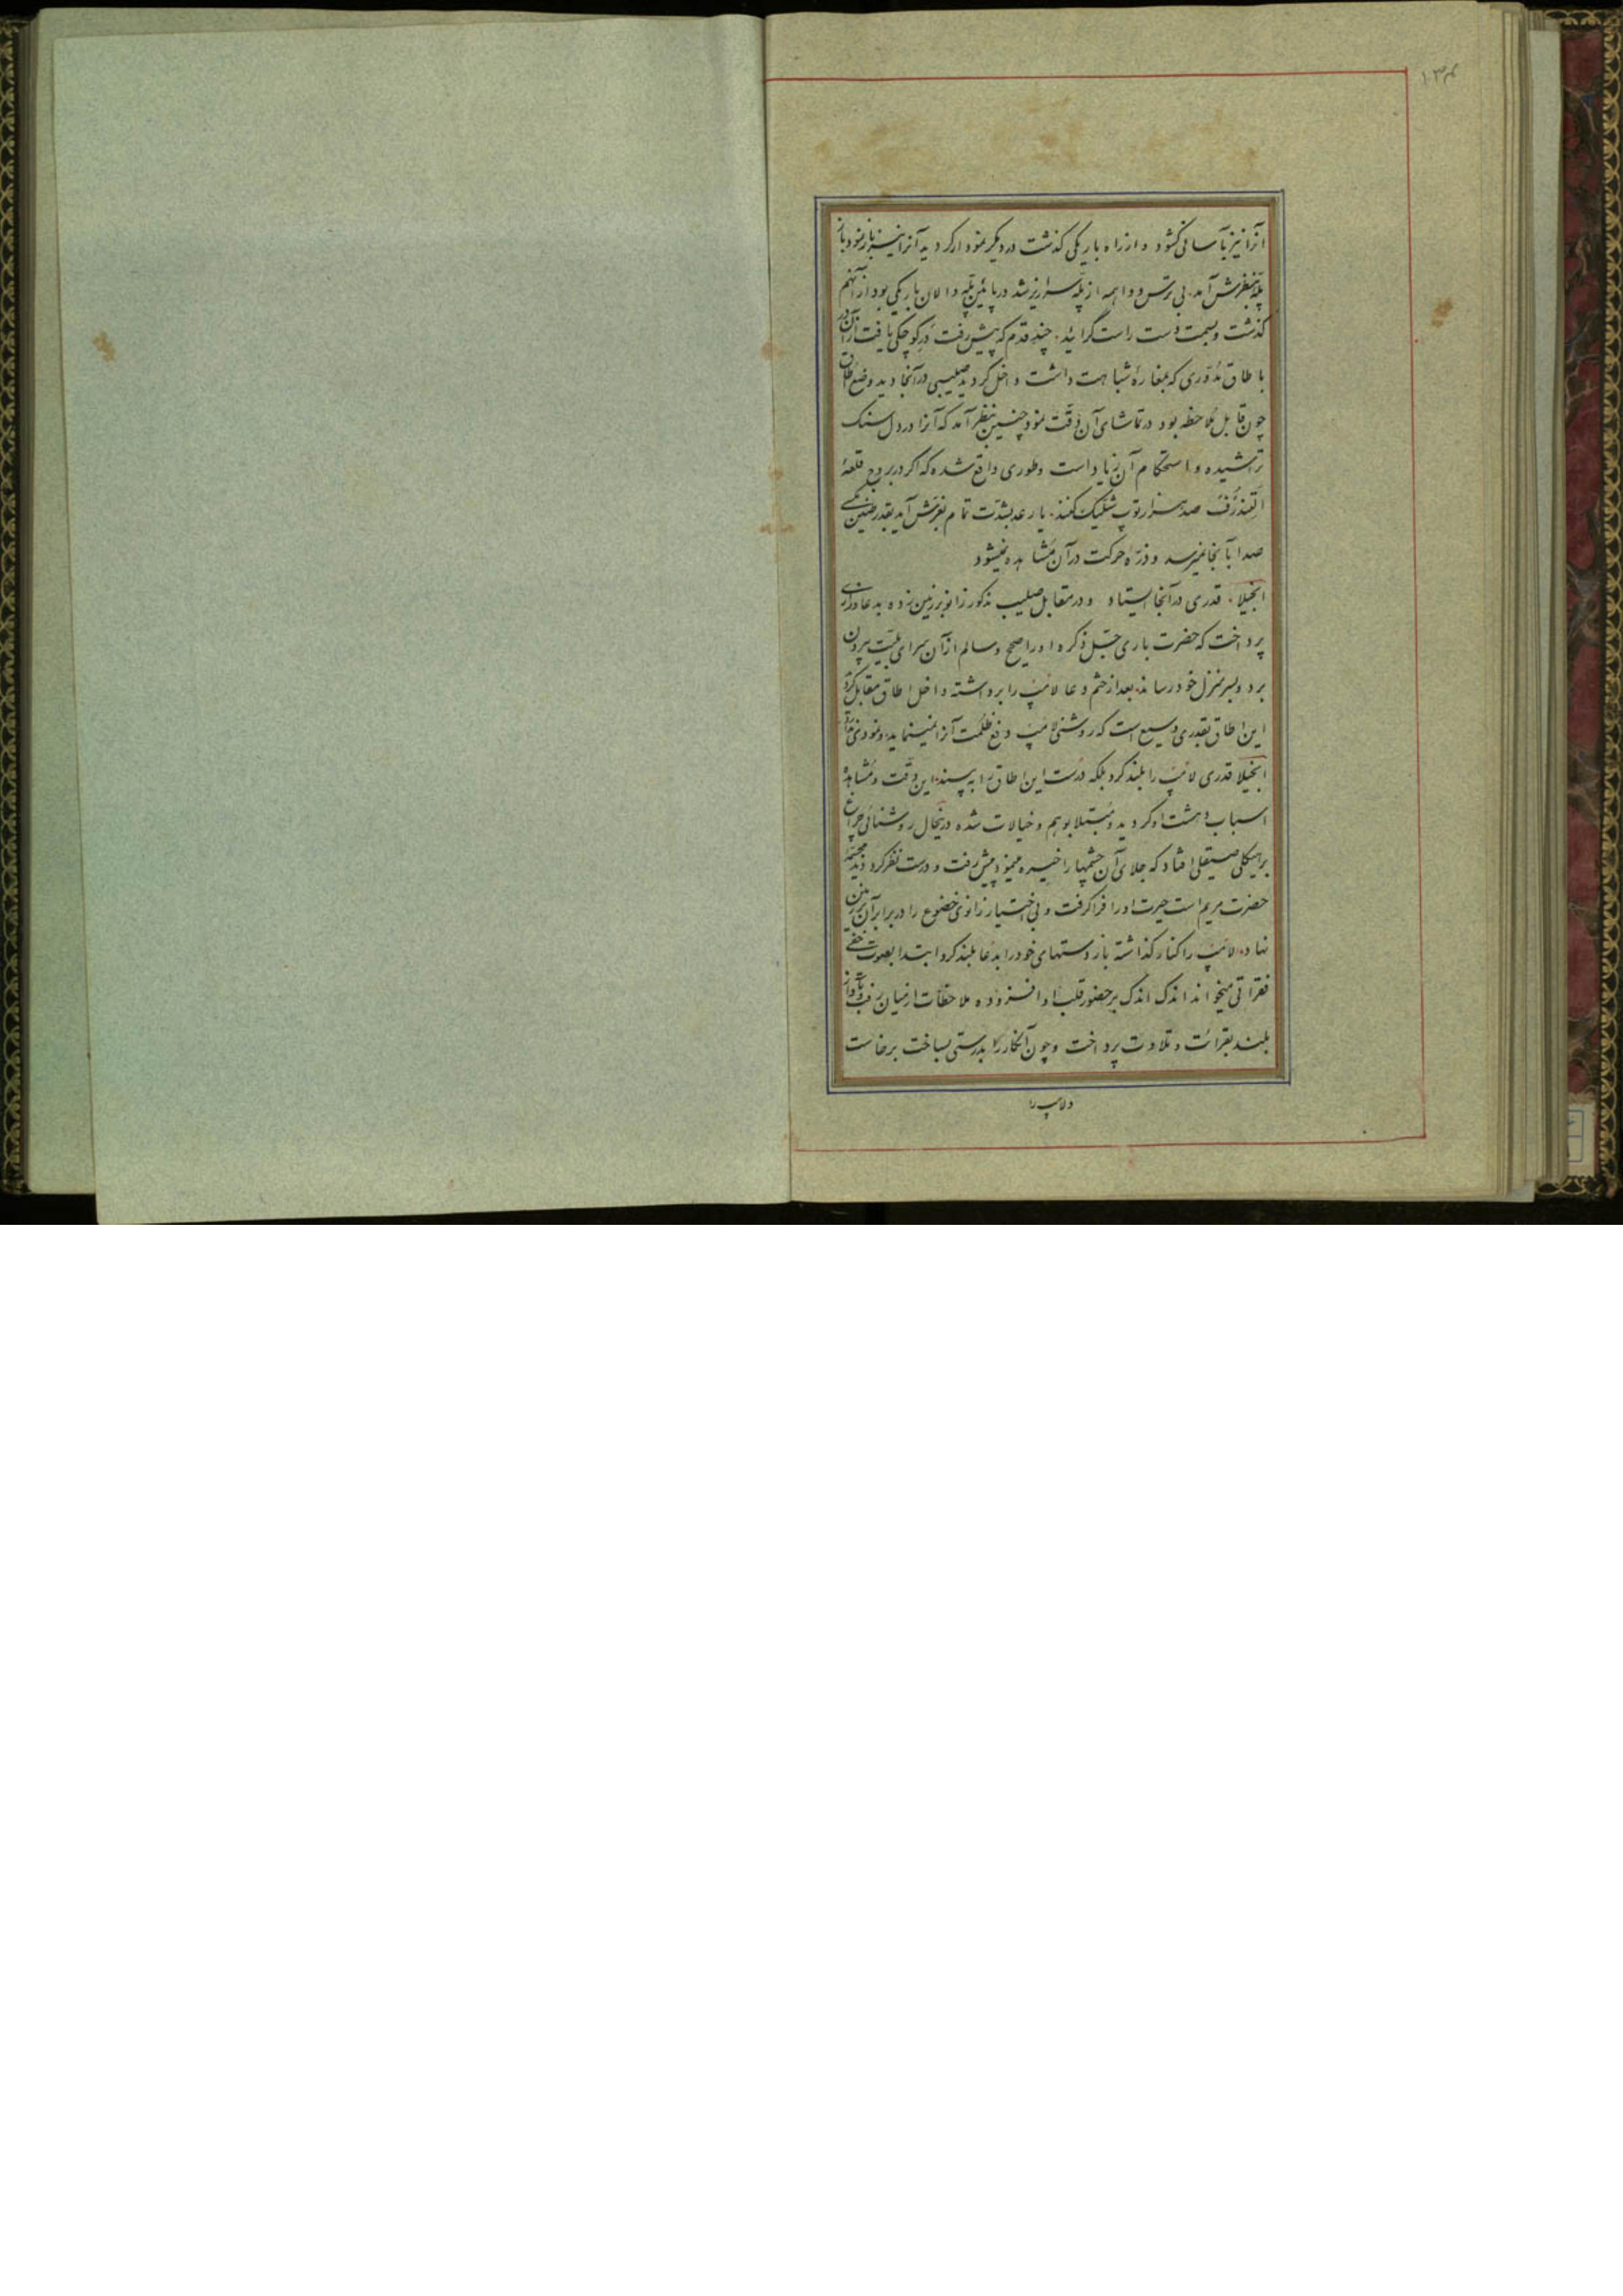 ۱۳۴
آنرا نیز بآسانی گشود و از راه باریکی گذشت در دیگر نمودار گردید آنرا نیز باز نمود باز
پله بنظرش آمد بی ترس و واهمه از پله سرازیر شد در پائین پله دالان باریکی بود از آنهم
گذشت و بسمت دست راست گرائید چند قدم که پیش رفت در کوچکی یافت از آن در
با طاق مدوری که بمغارهٔ شباهت داشت داخل گردید صلیبی در آنجا دید وضع طاق
چون قابل ملاحظه بود در تماشای آن دقت نمود چنین بنظر آمد که آنرا در دل سنک
تراشیده و استحکام آن زیاد است و طوری واقع شده که اگر در برج قلعهٔ
صد هزار توپ شلیک کنند یا رعد بشدت تمام بغرش آید بقدر طنین مگسی
صدا بآنجا نمیرسد و ذرّه حرکت در آن مشاهده نمیشود
انجیلا قدری در آنجا ایستاد و در مقابل صلیب مذکور زانو بر زمین زده بدعا و زاری
پرداخت که حضرت باری جلّ ذکره او را صحیح و سالم از آن سرای بلیّت بیرون
برد و بسر منزل خود رساند بعد از ختم دعا لامپ را برداشته داخل اطاق مقابل گردید
این اطاق بقدری وسیع است که روشنی لامپ دفع ظلمت آنرا نمینماید و نمودی ندارد
انجیلا قدری لامپ را بلند کرد بلکه درست این اطاق را به بیند این دقت و مشاهده
اسباب دهشت او گردید و مبتلا بوهم و خیالات شده در اینحال روشنائی چراغ
بر هیکلی صیقلی افتاد که جلای آن چشمها را خیره مینمود پیش رفت و درست نظر کرد دید مجسمهٔ
حضرت مریم است حیرت او را فرا گرفت و بی اختیار زانوی خضوع را در برابر آن بر زمین
نهاد لامپ را کنار گذاشته باز دستهای خود را بدعا بلند کرد ابتدا بصوت خفی
فقراتی میخواند اندک اندک بر حضور قلب او افزوده ملاحظات از میان رفت و بآواز
بلند بقرائت و تلاوت پرداخت و چون آنکار را بدرستی بساخت برخاست
و لامپ را